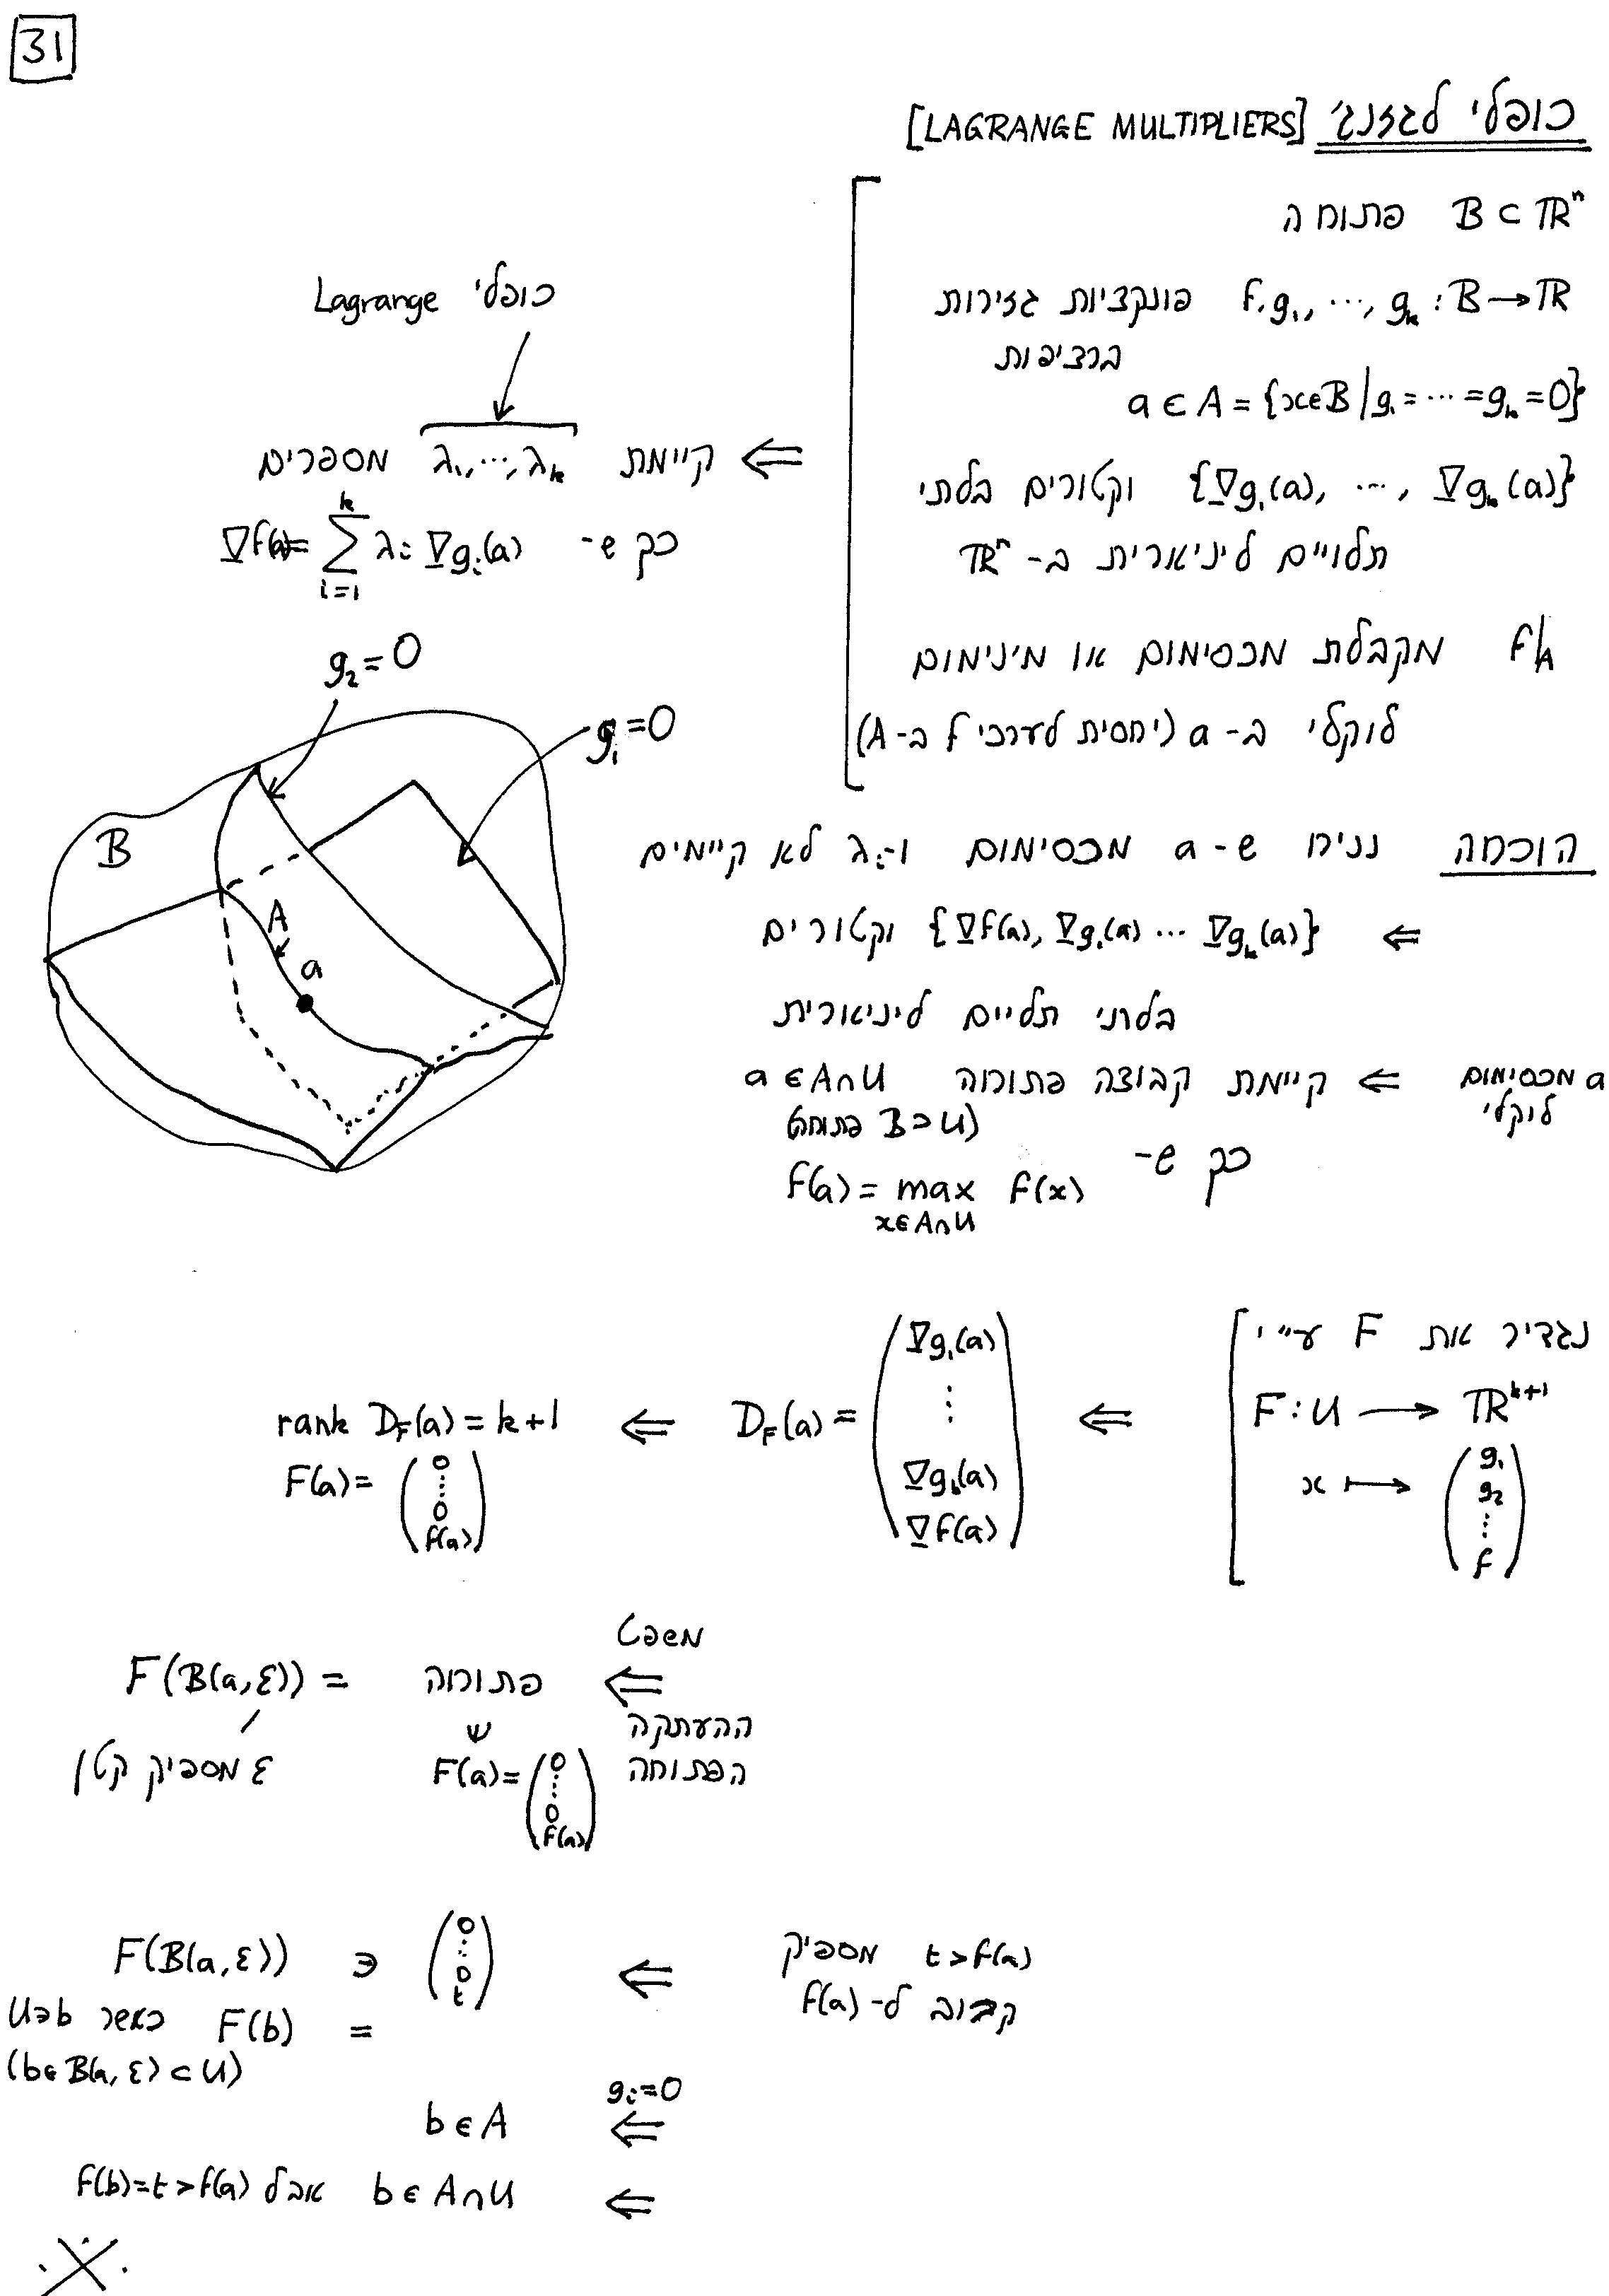 31
כופלי לגרנג׳ [LAGRANGE MULTIPLIERS]
B ⊂ ℝⁿ פתוחה
f, g₁, ⋯, gₖ : B → ℝ פונקציות גזירות
ברציפות
a ∈ A = {x∈B | g₁ = ⋯ = gₖ = 0}
{∇g₁(a), ⋯, ∇gₖ(a)} וקטורים בלתי
תלויים ליניארית ב- ℝⁿ
f|A מקבלת מכסימום או מינימום
לוקלי ב- a (יחסית לערכי f ב- A)
כופלי Lagrange
⇐ קיימת λ₁, ⋯, λₖ מספרים
כך ש- ∇f(a) = Σᵢ₌₁ᵏ λᵢ ∇gᵢ(a)
g₂ = 0
g₁ = 0
B
A
a
הוכחה נניח ש- a מכסימום ו- λᵢ לא קיימים
⇐ {∇f(a), ∇g₁(a) ⋯ ∇gₖ(a)} וקטורים
בלתי תליים ליניארית
a מכסימום לוקלי ⇐ קיימת קבוצה פתוחה a ∈ A∩U
(U⊂B פתוחה)
כך ש- f(a) = max f(x)
x∈A∩U
נגדיר את F ע״י
F : U ⟶ ℝᵏ⁺¹
x ⟼ (g₁ g₂ ⋮ f)
⇐ D_F(a) = (∇g₁(a) ⋮ ∇gₖ(a) ∇f(a))
⇐ rank D_F(a) = k+1
F(a) = (0 ⋮ 0 f(a))
משפט
⇐ פתוחה = F(B(a,ε))
ההעתקה
הפתוחה
F(a) = (0 ⋮ 0 f(a))
ε מספיק קטן
t > f(a) מספיק
קרוב ל- f(a)
⇐ (0 ⋮ 0 t) ∋ F(B(a,ε))
= F(b) כאשר b∈U
(b∈B(a,ε) ⊂ U)
gᵢ=0
⇐ b ∈ A
⇐ b ∈ A∩U אבל f(b)=t>f(a)